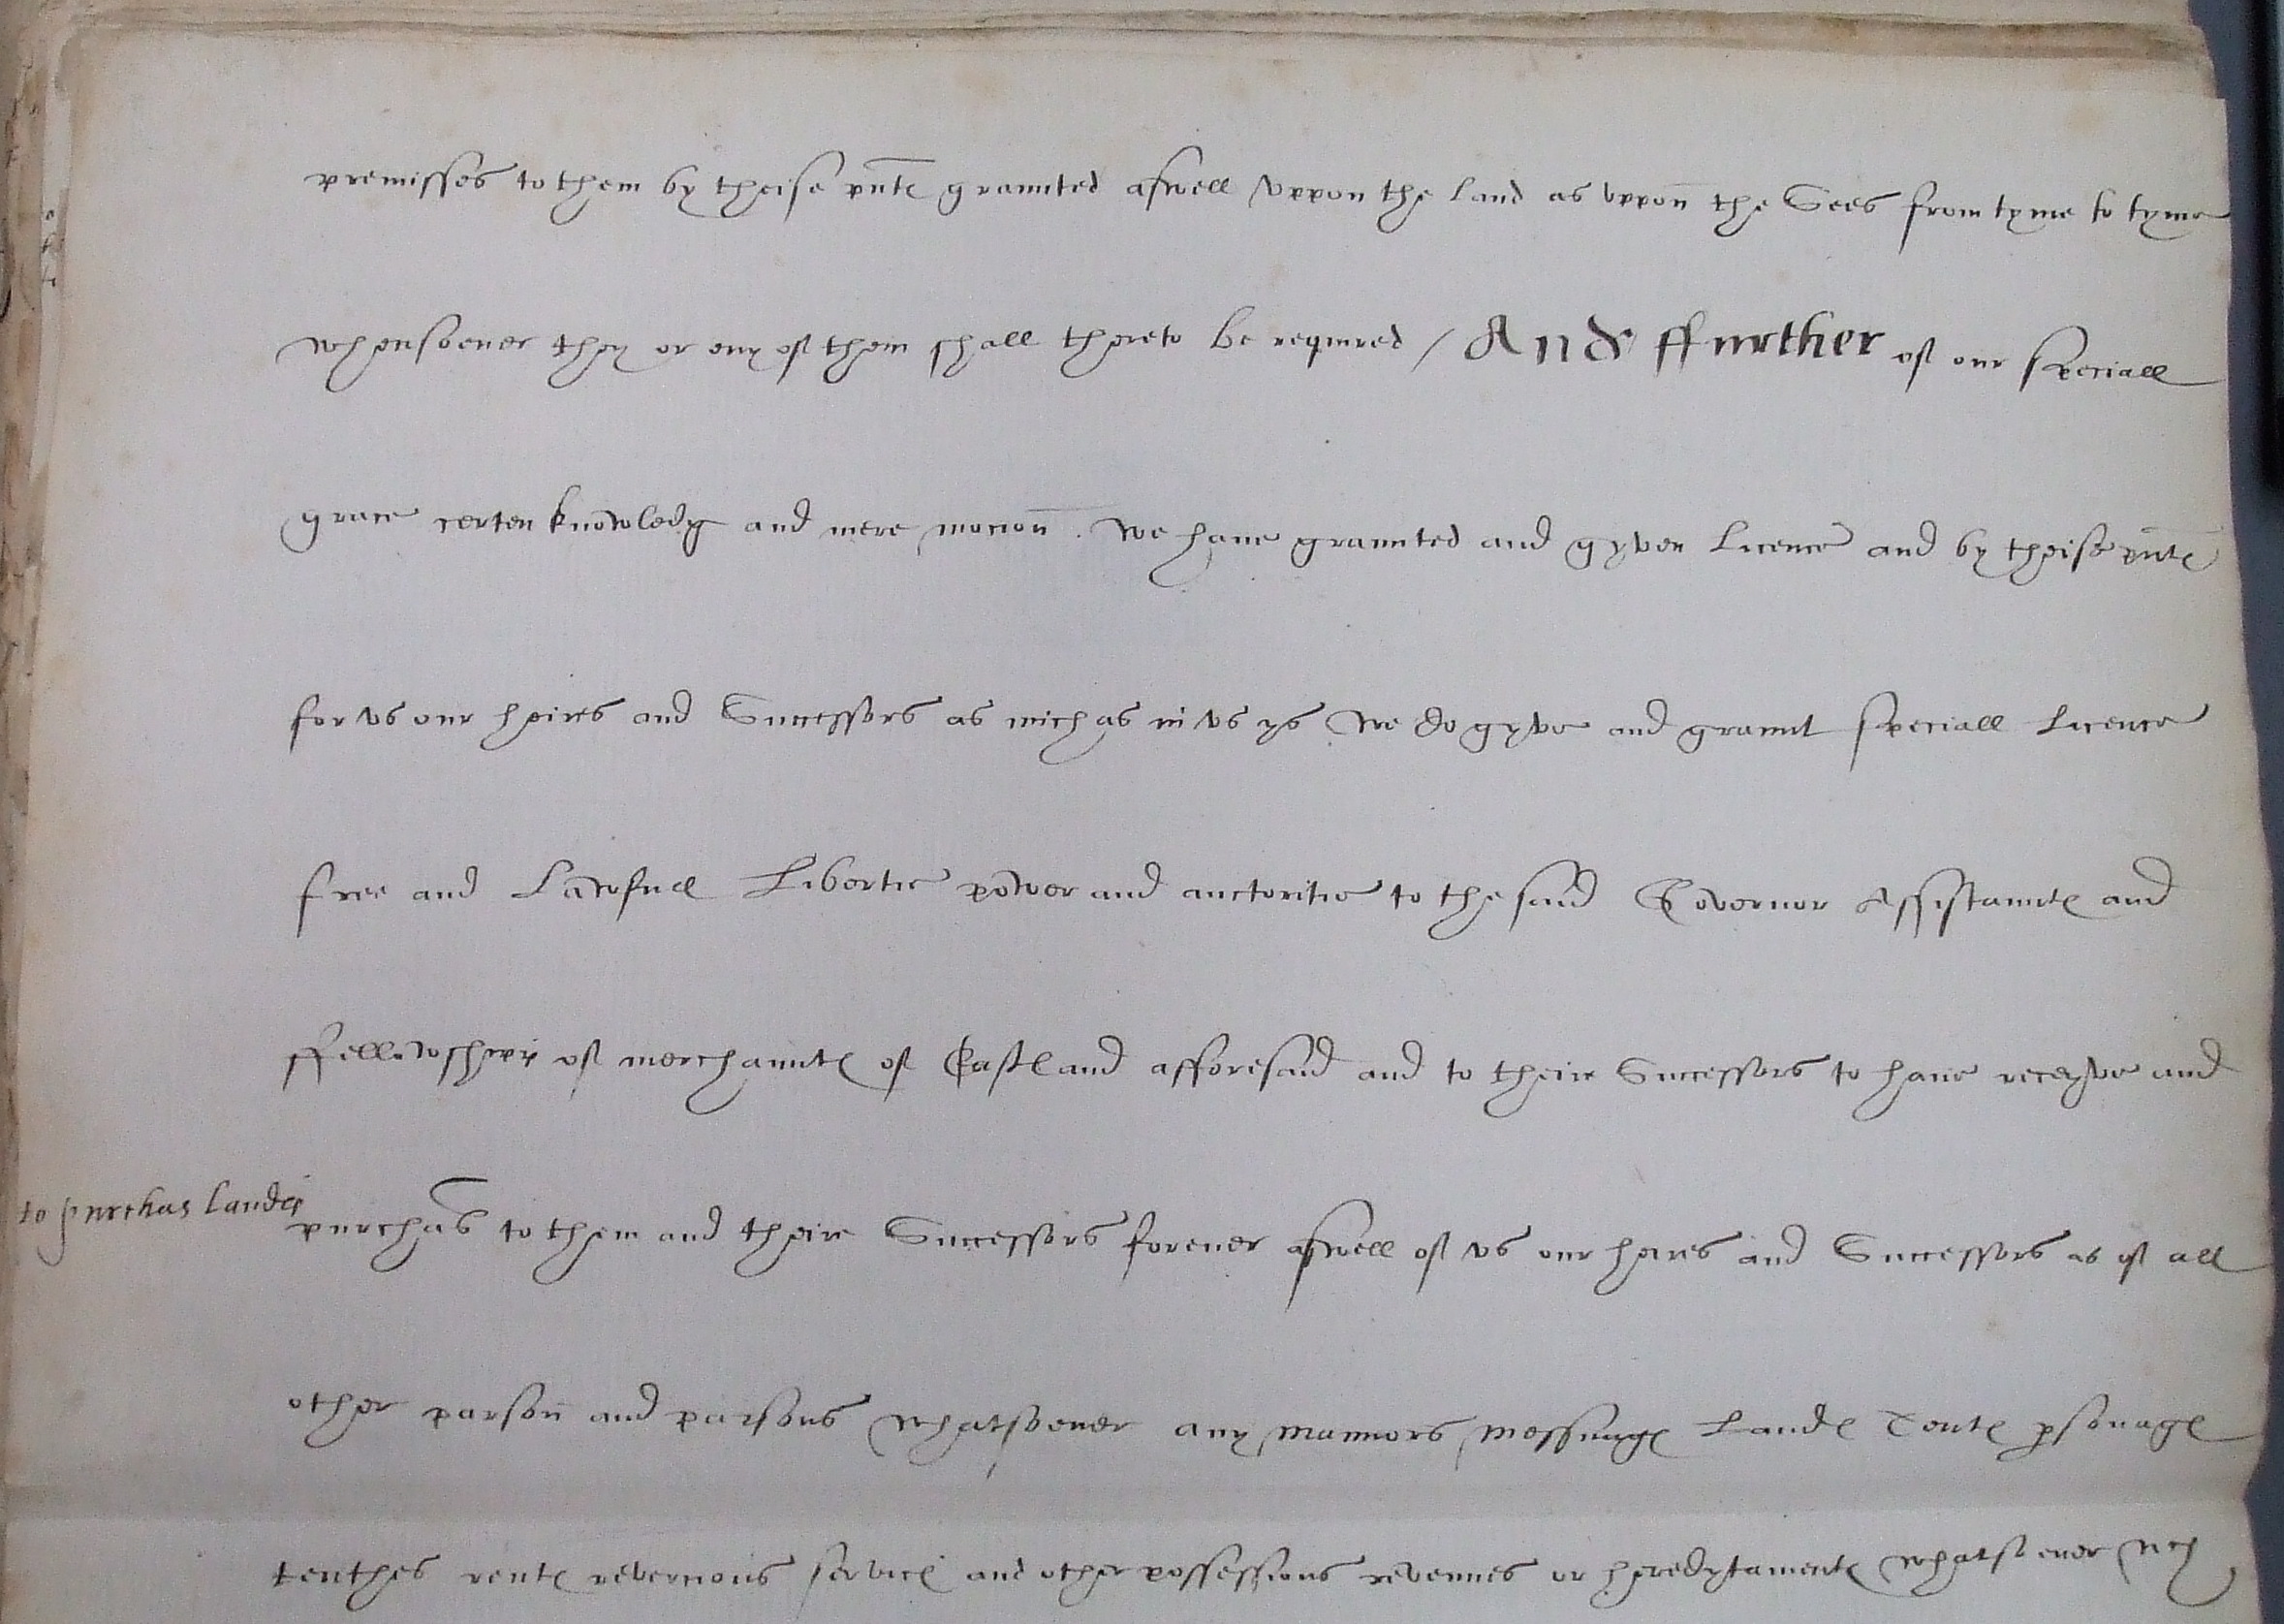 premisses to them by theise pnte graunted aswell vppon the land as vppon the Sees from tyme to tyme
whensoeuer they or eny of them shall thereto be required / And ffurther of our speciall
grace certen knowledg and mere mocion . We haue graunted and gyven Licence and by theise pnte
for vs our heires and Successors as mich as in vs ys We do gyve and graunt speciall Licence
free and Lawfull Libertie power and auctoritie to the said Governor Assistaunte and
ffellowshipp of merchaunte of Eastland afforesaid and to their Successors to haue receyve and
to purchas Landes
purchas to them and theire Successors foreuer aswell of vs our heires and Successors as of all
other parson and parsons whatsoeuer any mannors messuage Lande Tente psonage
tenthes rente revercions service and other possessions revenues or heredytamente whatsoeuer wch